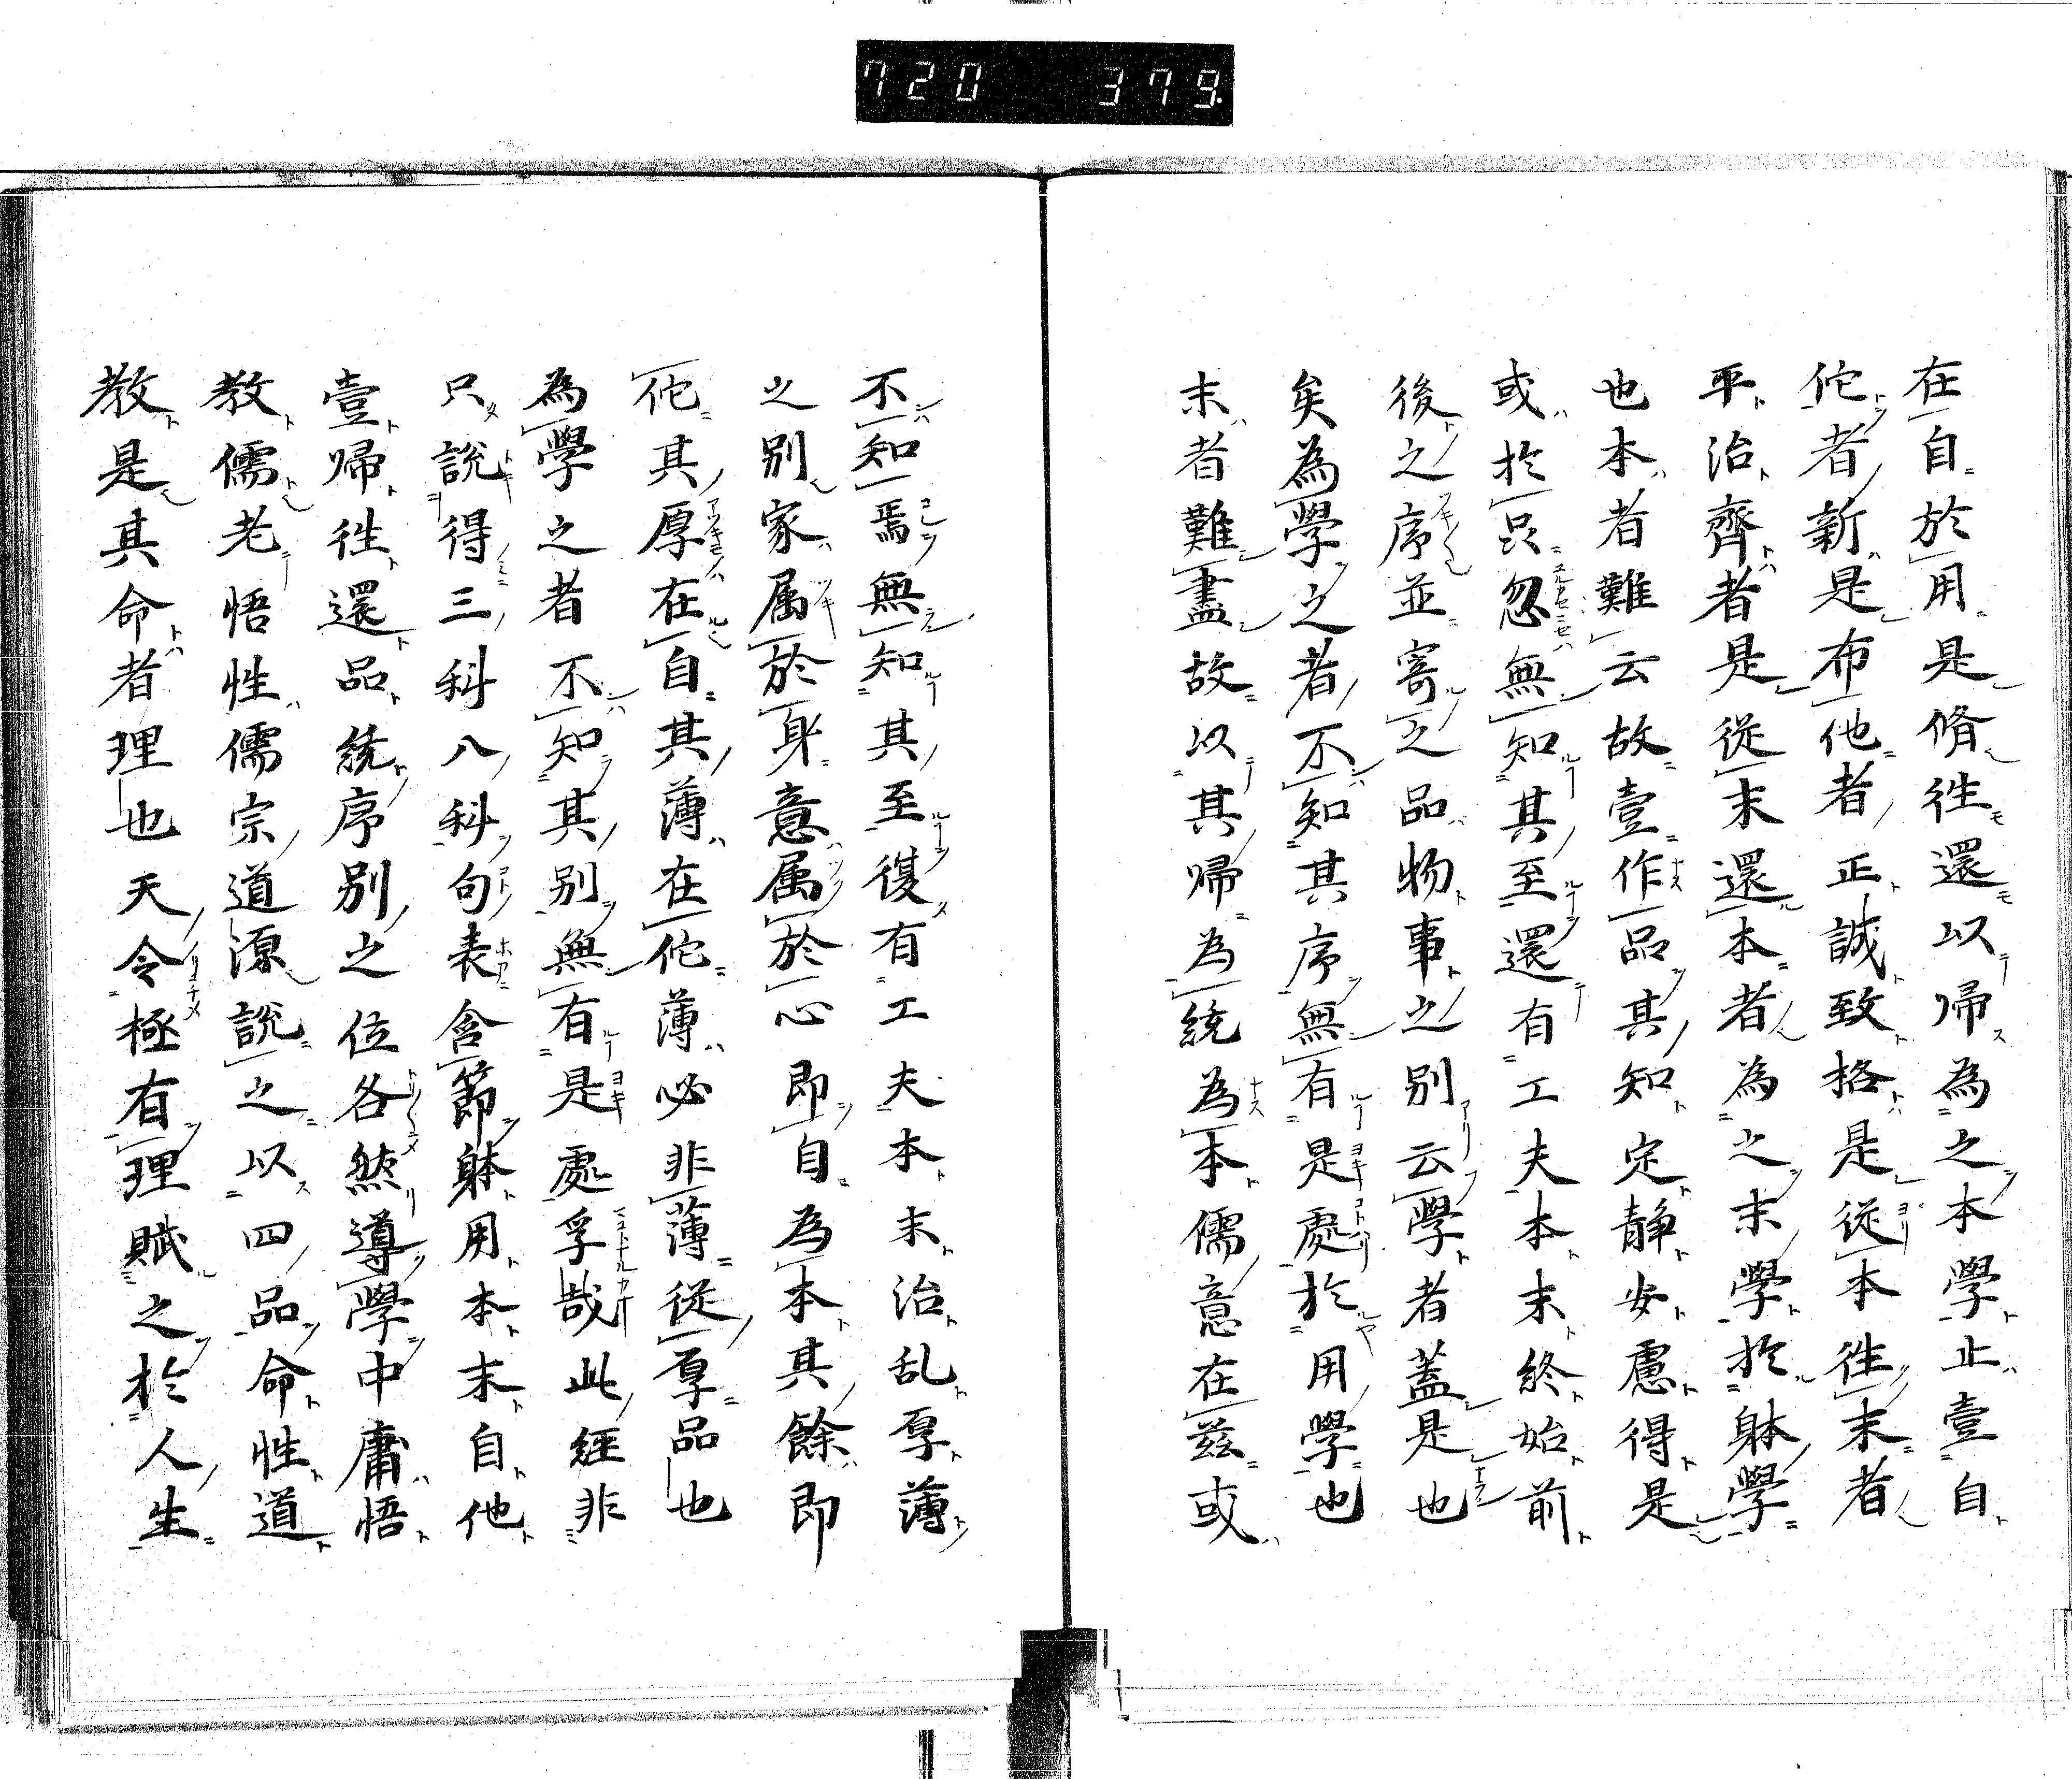 720 379.
在自於用是脩徃還以帰為之本學止壹自
佗者新是布他者正誠致格是従本徃末者
平治齊者是從末還本者為之末學於躰學
也本者難云故壹作品其知定静安慮得是
或於忽無知其至還有工夫本末終始前
後之序並寄之品物事之別云學者蓋是也
矣為學之者不知其序無有是處於用學也
末者難盡故以其帰為統為本儒意在茲或
不知焉無知其至復有工夫本末治乱厚薄
之別家属於身意属於心即自為本其餘即
佗其厚在自其薄在佗薄必非薄從厚品也
為學之者不知其別無有是處孚哉此經非
只說得三科八科句表含節躰用本末自他
壹帰徃還品統序別之位各然導學中庸悟
教儒老悟性儒宗道源說之以四品命性道
教是其命者理也天令極有理賦之於人生